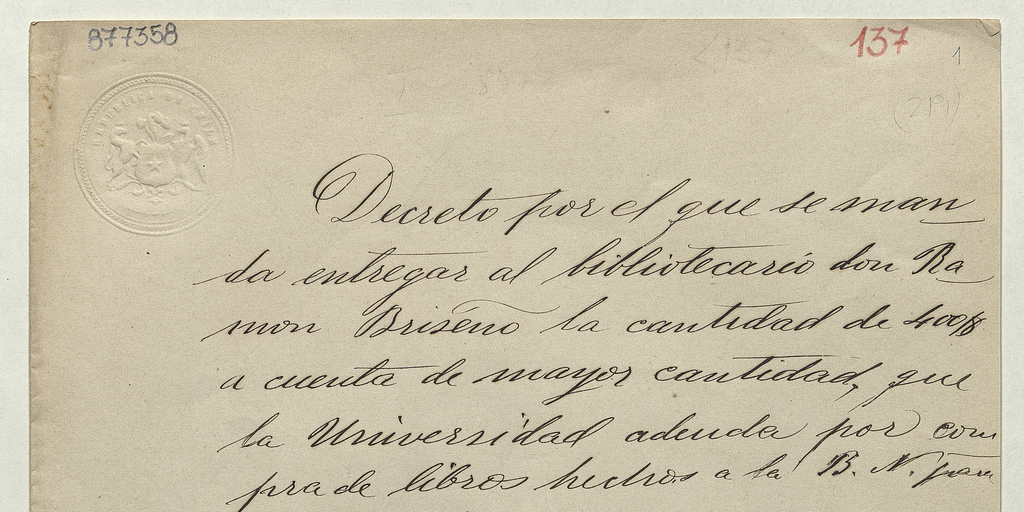 877358
137
1
(219)
REPUBLICA DE CHILE
Decreto por el que se man
da entregar al bibliotecario don Ra
mon Briseño la cantidad de 400$
a cuenta de mayor cantidad, que
la Universidad adeuda por com
pra de libros hechos a la B. N. para